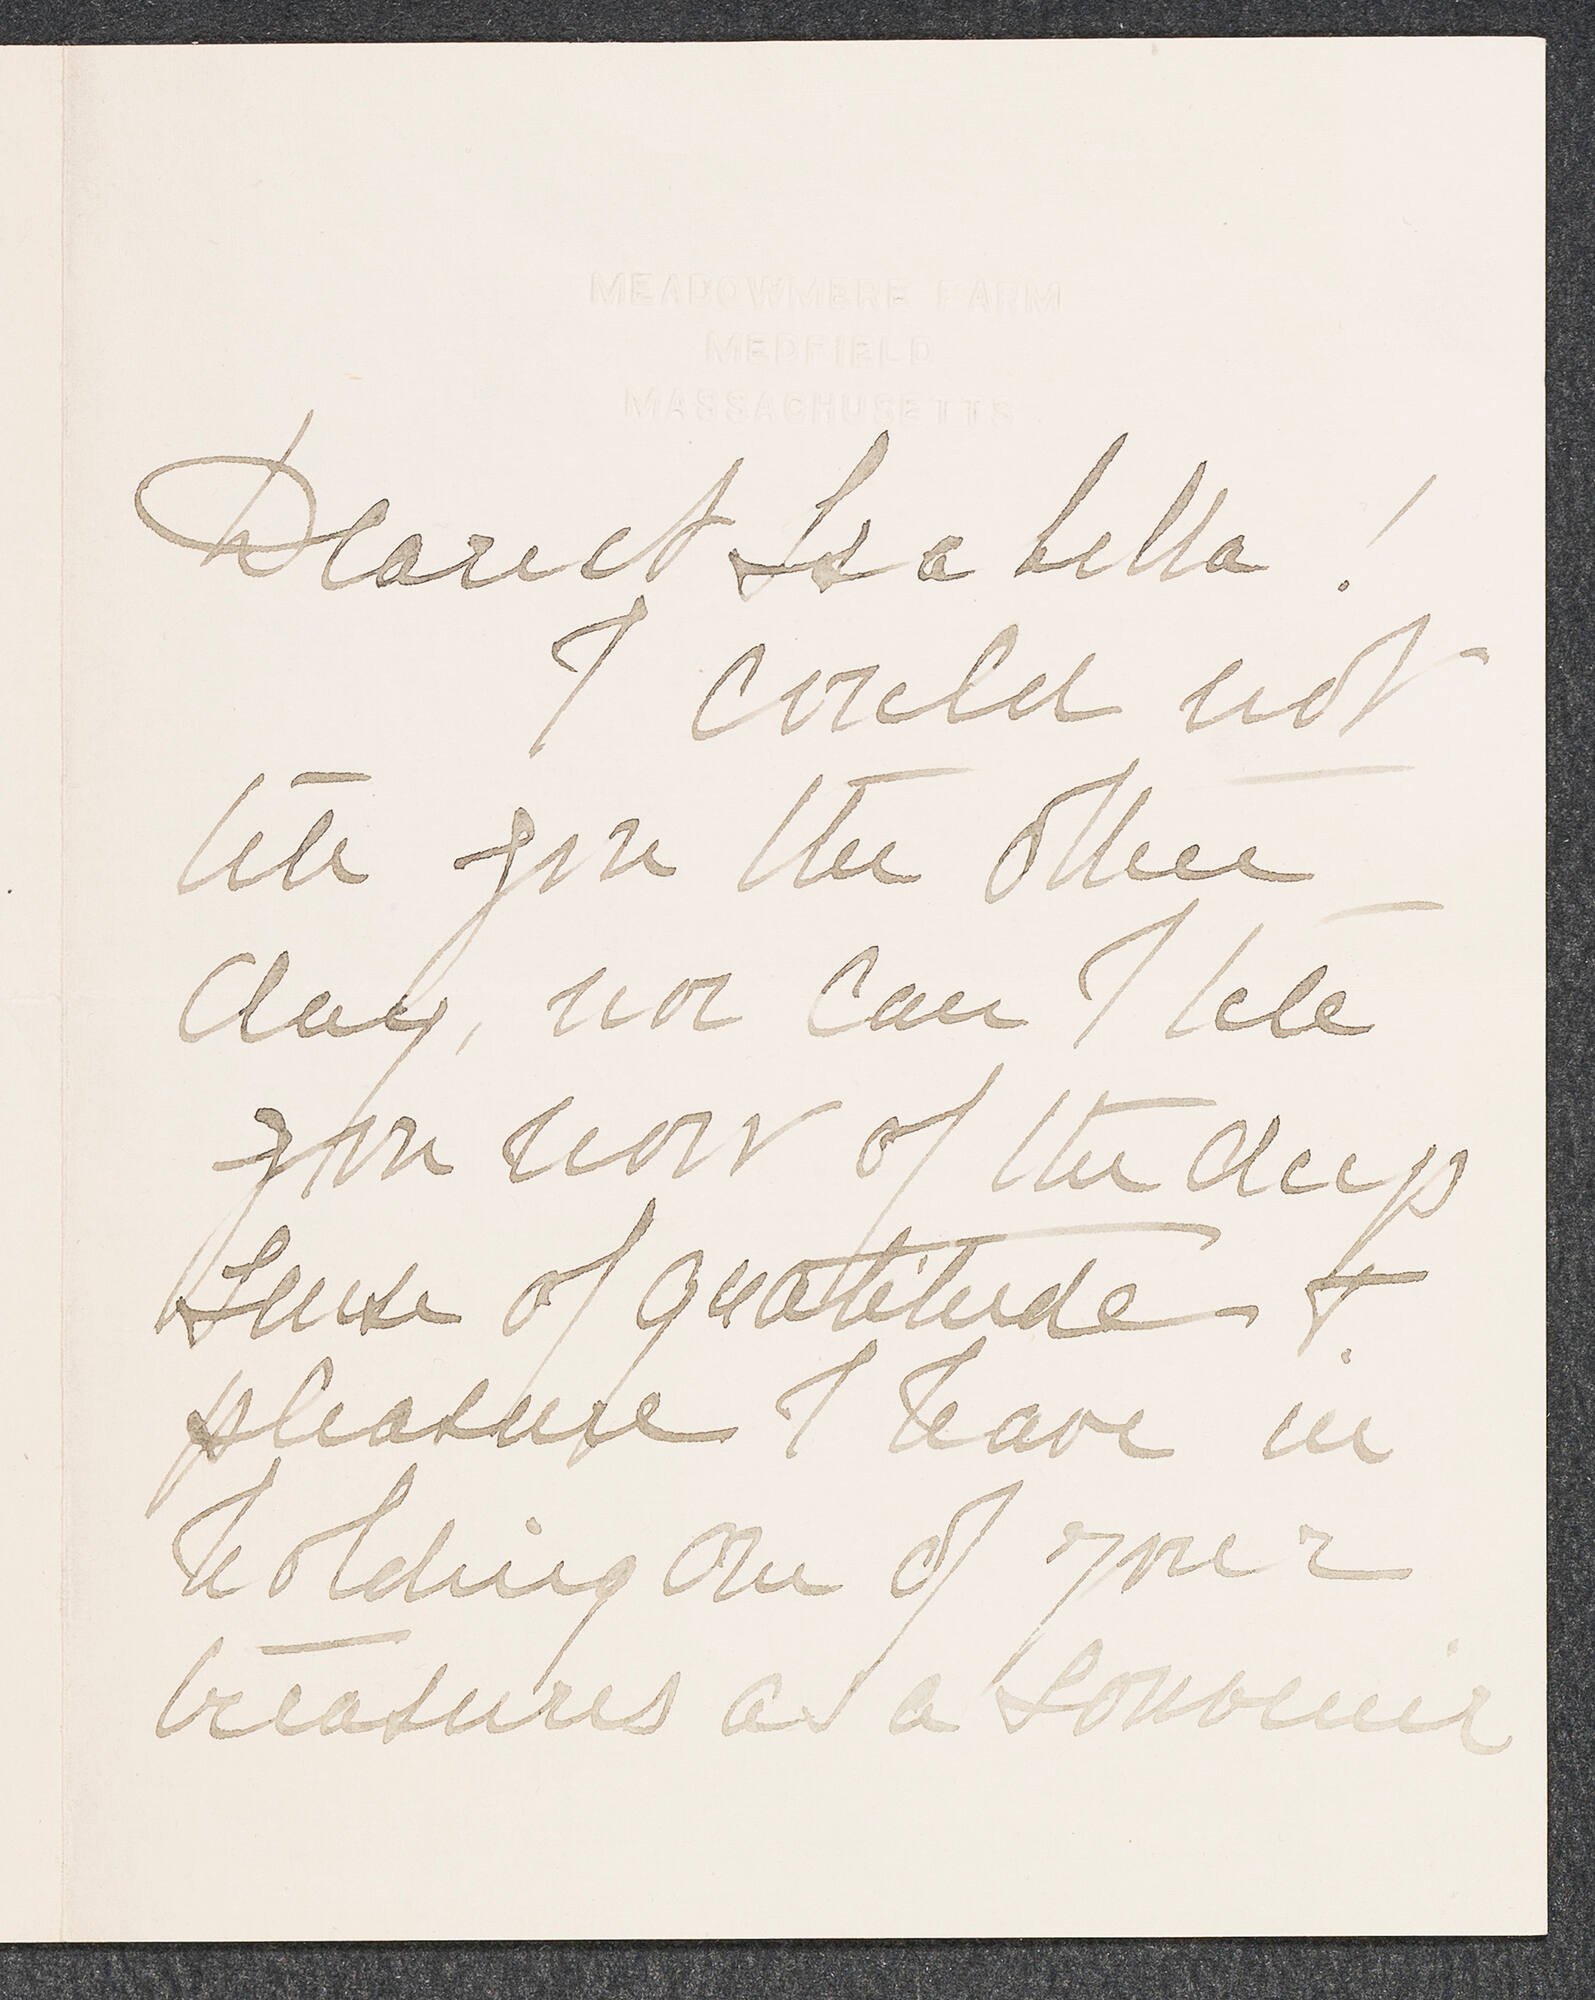 MEADOWMERE FARM
MEDFIELD
MASSACHUSETTS
Dearest Isabella!
I could not
tell you the other
day, nor can I tell
you now of the deep
sense of gratitude &
pleasure I have in
holding one of your
treasures as a souvenir